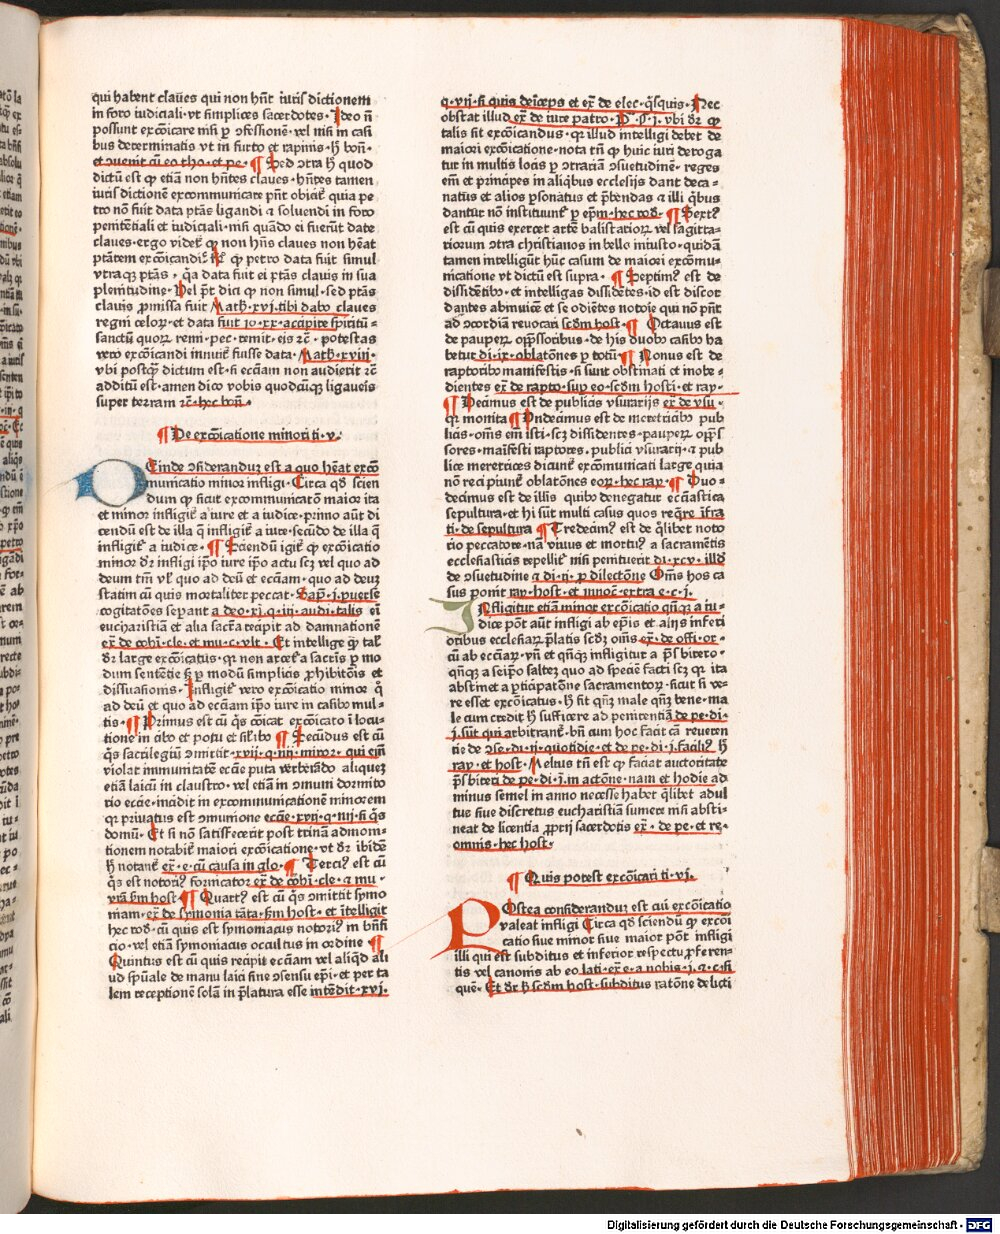 qui habent claues qui non hn̄t iurisdictionem
in foro iudiciali·vt simplices sacerdotes·Ideo n̄
possunt excōicare nisi p ꝯfessionē·vel nisi in casi
bus determinatis vt in furto et rapinis·h̄ bon̄·
et ꝯuenit cū eo tho·et pe·¶ Sed ꝯtra h̄ quod
dictū est ꝙ etiā non hn̄tes claues·hn̄tes tamen
iurisdictionē excommunicare pn̄t obicit̄ quia pe
tro nō fuit data ptās ligandi ⁊ soluendi in foro
penitētiali et iudiciali·nisi quādo ei fuerūt date
claues·ergo videt̄ ꝙ non hn̄s claues non heāt
ptātem excōicandi ꝙ petro data fuit simul
vtraqꝫ ptās·qa data fuit ei ptās clauis in sua
plenitudine·Vel pt̄ dici ꝙ non simul·sed ptās
clauis pmissa fuit Math·xvj·tibi dabo claues
regni celoꝝ·et data fuit io·xx·accipite spiritū
sanctū quoꝝ remi·pec·remit·eis ⁊c̄·potestas
vero excōicandi innuit̄ fuisse data·Math·xviij·
vbi postqꝫ dictum est·si ecciam non audierit ⁊c̄
additū est·amen dico vobis quodcūqꝫ ligaueis
super terram ⁊c̄·hec bon̄·
¶De excōicatione minori ti·v·
DEinde ꝯsideranduꝫ est a quo heāt excō
municatio minor infligi·Circa qd̄ scien
dum ꝙ sicut excommunicatō maior ita
et minor infligit̄ a iure et a iudice·primo aūt di
cendū est de illa q̄ infligit̄ a iure·secūdo de illa q̄
infligit̄ a iudice·¶ Sciendū igit̄ ꝙ excōicatio
minor dr̄ infligi ipō iure ipō actu scꝫ vel quo ad
deum tm̄ vl̄ quo ad deū et ecciam·quo ad deuꝫ
statim cū quis mortaliter peccat·Sap·j·puerse
cogitatōes sepant a deo·xj·q·iij·audi·talis eī
eucharistiā et alia sacrā recipit ad damnationē
ex̄ de cohi·cle·et mu·c·vlt·Et intellige ꝙ tal̄
dr̄ large excōicatus·qꝛ non arcet̄ a sacris p mo
dum sententie sꝫ p modū simplicis phibitōis et
dissuasionis·Infligit̄ vero excōicatio minor q̄
ad deū et quo ad ecciam ipō iure in casibꝰ mul
tis·¶Primus est cū qs cōicat excōicato ī locu
tione in cibo et potu et sil̄ibꝰ ¶ Secūdus est cū
qs sacrilegiū ꝯmittit·xvij·q·iiij·miror·qui eīm
violat immunitatē eccie puta verberādo aliquez
etiā laicū in claustro·vel etiā in ꝯmuni dormito
rio eccie·incidit in excommunicationē minorem
qꝛ priuatus est ꝯmunione eccie·xvij·q·iiij·si qs
domū·Et si nō satisfecerit post trinā admoni
tionem notabit̄ maiori excōicatione·vt dr̄ ibidē
h̄ notant̄ ex̄·e·cū causa in glo·¶ Terciꝰ est cū
qs est notoriꝰ fornicator ex̄ de cohi·cle·⁊ mu·
vrā sm host·¶ Quartꝰ est cū qs ꝯmittit symo
niam·ex̄ de symonia tāta·sm host·et itelligit
hec rod·cū quis est symoniacus notoriꝰ in bn̄fi
cio·vel etiā symoniacus occultus in ordine ¶
Quintus est cū quis recipit ecciam vel aliqd ali
ud spūale de manu laici sine ꝯsensu epī·et per ta
lem receptionē solā in platura esse intēdit·xvj·
q·vij·si quis deiceps et ex̄ de elec·qsquis·Nec
obstat illud ex̄ de iure patro·P·S·j·vbi dr̄ ꝙ
talis sit excōicandus·qꝛ illud intelligi debet de
maiori excōicatione·nota tn̄ ꝙ huic iuri deroga
tur in multis locis p ꝯtrariā ꝯsuetudinē·reges
em̄ et principes in aliqbus ecclesijs dant deca
natus et alios psonatus et pbendas ⁊ illi qbus
dantur nō instituunt̄ p epm·hec rod·¶ Sextꝰ
est cū quis exercet artē balistarioꝝ vel sagitta
rioꝝum ꝯtra christianos in bello iniusto·quidā
tamen intelligūt hūc casum de maiori excōmu
nicatione vt dictū est supra·¶ Septimꝰ est de
dissidētibꝰ·et intelligas dissidētes·id est discor
dantes abinuicē et se odientes notorie qui nō pn̄t
ad ꝯcordiā reuocari scdm host·¶ Octauus est
de pauperꝝ oppssoribus·de his duobꝰ casibꝰ ha
betur di·ix·oblatōnes p totū·¶ Nonus est de
raptoribꝰ manifestis·si sunt obstinati et inobe
dientes ex̄ de rapto·sup eo·scdm hosti·et ray·
¶Decimus est de publicis vsurarijs ex̄ de vsu·
qꝛ monita ¶Undecimus est de meretricibꝰ pub
licis·oms em̄ isti·scꝫ dissidentes·pauperꝝ oppss
sores·maīfesti raptores·publici vsurarij·⁊ pub
lice meretrices dicunt̄ excōmunicati large quia
nō recipiunt̄ oblatōnes eoꝝ·hec ray·¶ Duo
decimus est de illis quibꝰ denegatur ecciastica
sepultura·et hi sūt multi casus quos reqre īfra
ti·de sepultura ¶ Tredecimꝰ est de qlibet noto
rio peccatore·nā viuus et mortuꝰ a sacramētis
ecclesiasticis repellit̄ nisi penituerit di·xcv·illd
de ꝯsuetudine ⁊ di·ij·p dilectōne Oms hos ca
sus ponit ray·host·et innoc·extra e·c·j·
INfligitur etiā minor excōicatio qnqꝫ a iu
dice pōt aūt infligi ab epis et alijs inferi
oribus ecclesiaꝝ platis scdm oms·ex̄·de offi·or·
cū ab ecciaꝝ·vn̄ et qnqꝫ infligitur a psbitero·
qnqꝫ a seipō saltez quo ad speciē facti scꝫ qꝛ ita
abstinet a pticipatōne sacramentoꝝ·sicut si ve
re esset excōicatus·h̄ sit qnꝫ male qnꝫ bene·ma
le cum credit h̄ sufficere ad penitentiā de pe·di·
j·sūt qui arbitrant̄·bn̄ cum hoc facit cā reueren
tie de ꝯse·di·ij·quotidie·et de pe·di·j·facili h̄
ray·et host·Melius tn̄ est ꝙ faciat auctoritate
psbiteri de pe·di·j·in actōne·nam et hodie ad
minus semel in anno necesse habet qlibet adul
tus siue discretus eucharistiā sumere nisi absti
neat de licentia pprij sacerdotis ex̄·de pe·et re·
omnis·hec host·
¶ Quis potest excōicari ti·vj·
POstea considerandus est cui excōicatio
valeat infligi Circa qd̄ sciendū ꝙ excōi
catio siue minor siue maior pōt infligi
illi qui est subditus et inferior respectu pferen
tis vel canonis ab eo lati·ex̄ e·a nobis·j·⁊·c·si
quē·Et dr̄ h̄ scdm host·subditus ratōne delicti
Digitalisierung gefördert durch die Deutsche Forschungsgemeinschaft - DFG